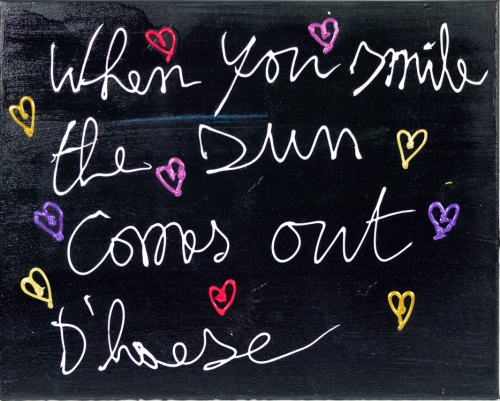 When you smile
the sun
comes out
D'haese